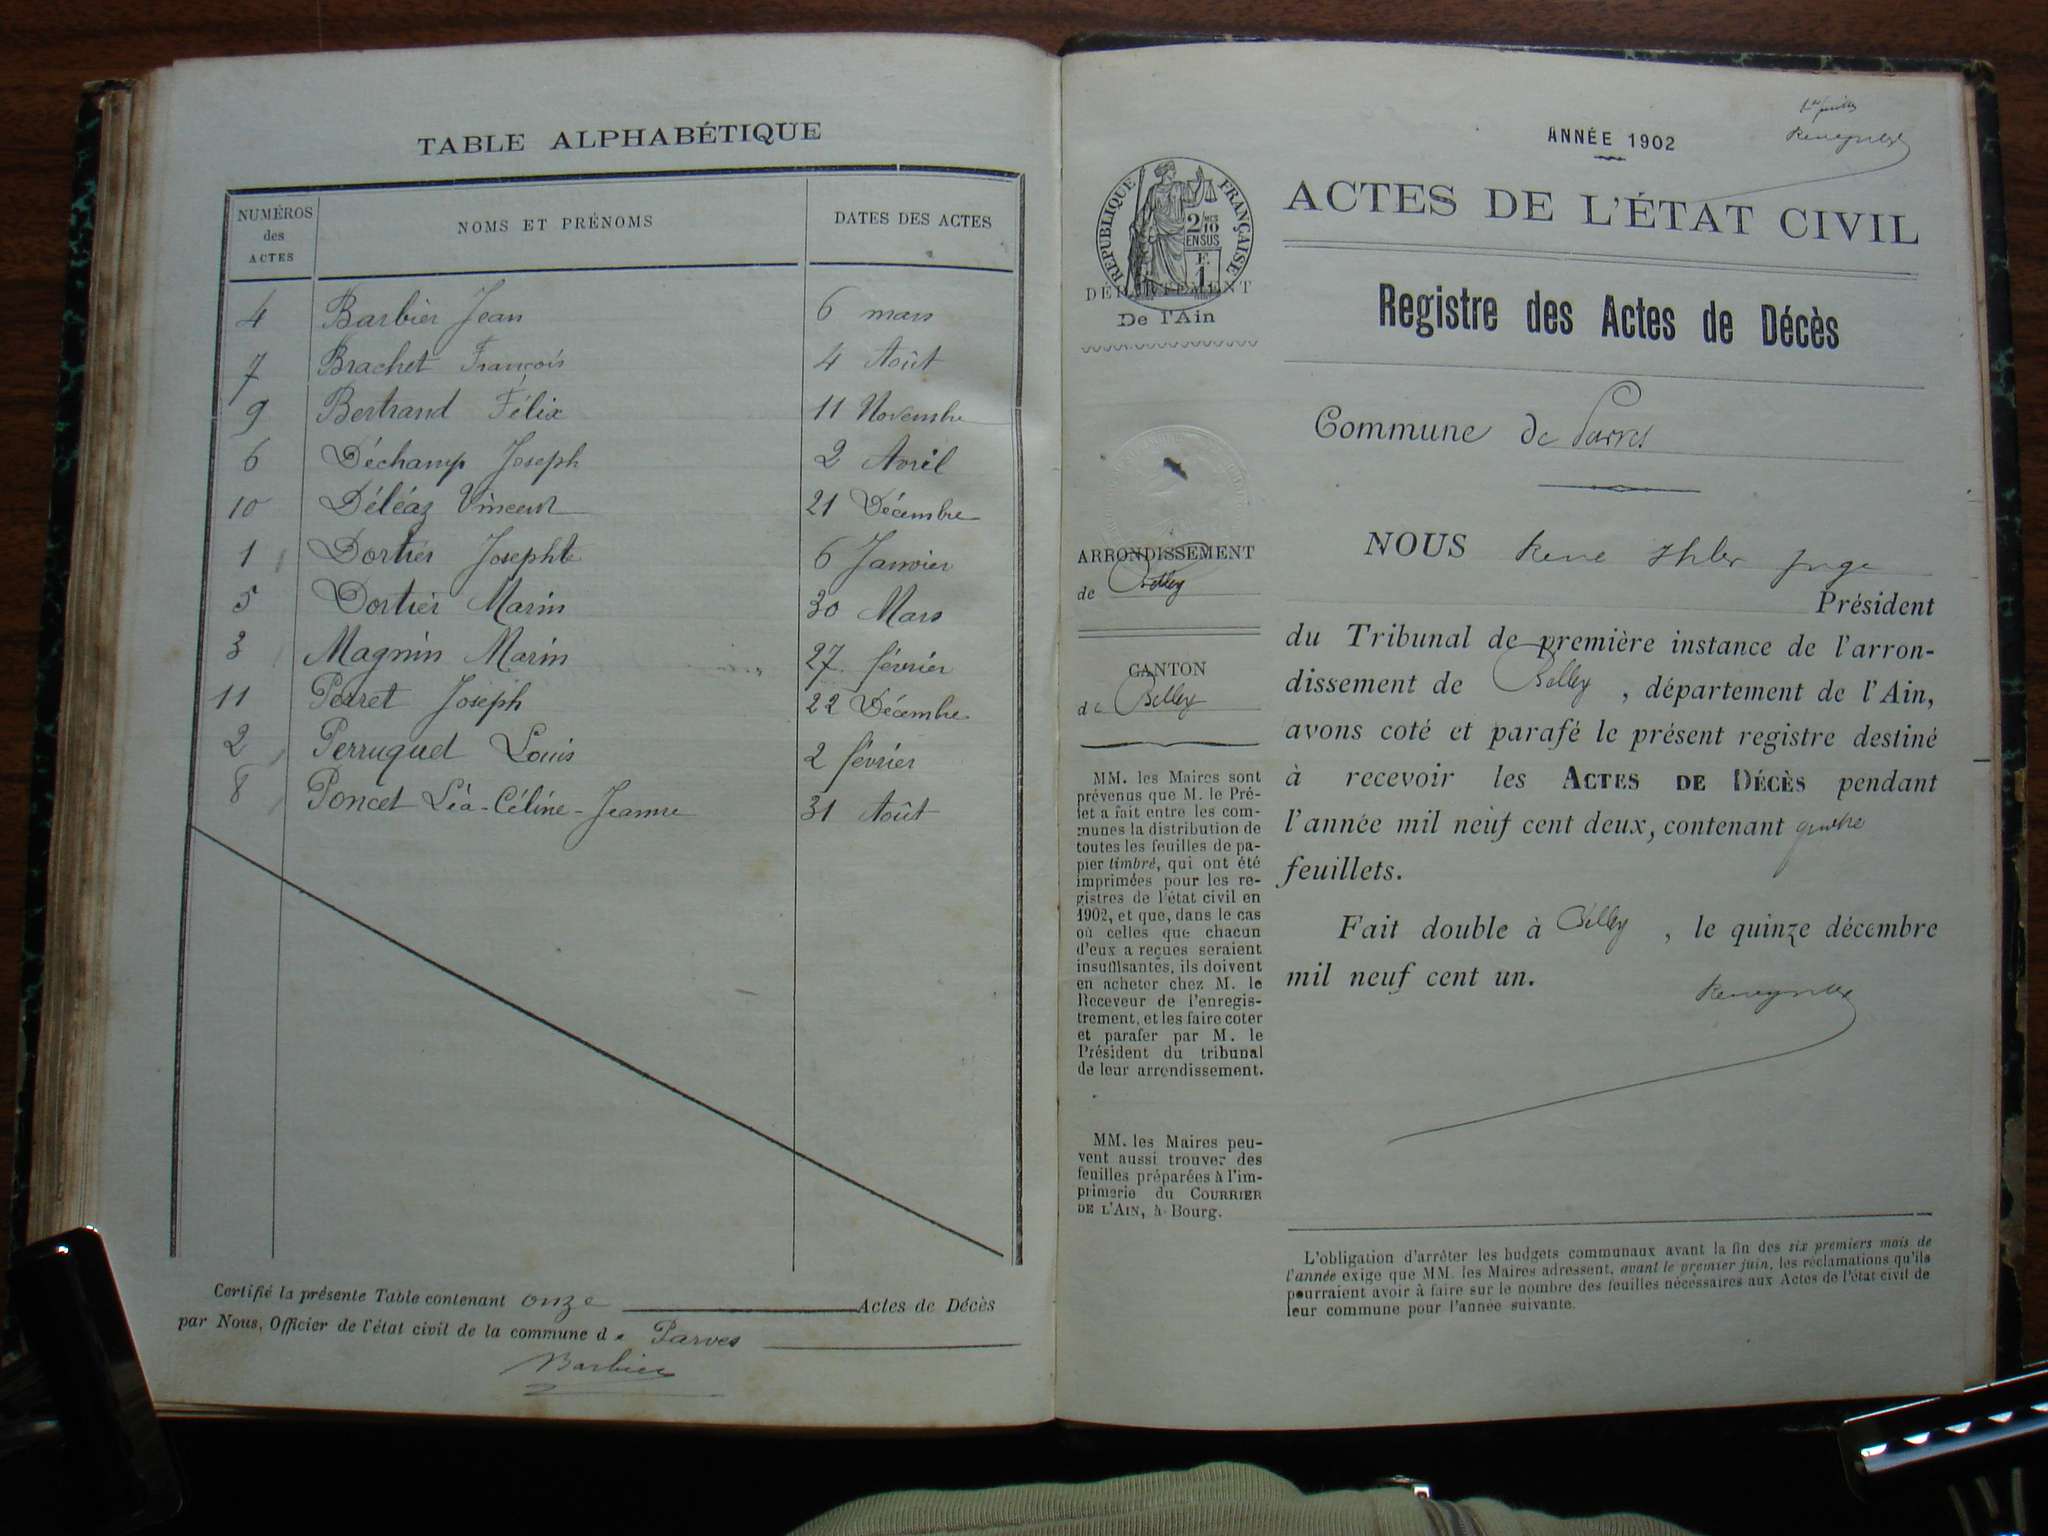 TABLE ALPHABÉTIQUE
NUMÉROS des ACTES NOMS ET PRÉNOMS DATES DES ACTES
4 Barbier Jean 6 mars
7 Brachet François 4 Août
9 Bertrand Félix 11 Novembre
6 Déchamp Joseph 2 Avril
10 Déléaz Vincent 21 Décembre
1 Dortier Josephte 6 Janvier
5 Dortier Marin 30 Mars
3 Magnin Marin 27 février
11 Perret Joseph 22 Décembre
2 Perruquet Louis 2 février
8 Poncet Léa-Céline-Jeanne 31 Août
Certifié la présente Table contenant onze Actes de Décès
par Nous, Officier de l'état civil de la commune de Parves
Barbier
ANNÉE 1902
RÉPUBLIQUE FRANÇAISE
2/10 EN SUS
F. 1
DÉPARTEMENT
De l'Ain
ARRONDISSEMENT
de Belley
CANTON
de Belley
MM. les Maires sont
prévenus que M. le Pré-
fet a fait entre les com-
munes la distribution de
toutes les feuilles de pa-
pier timbré, qui ont été
imprimées pour les re-
gistres de l'état civil en
1902, et que, dans le cas
où celles que chacun
d'eux a reçues seraient
insuffisantes, ils doivent
en acheter chez M. le
Receveur de l'enregis-
trement, et les faire coter
et parafer par M. le
Président du tribunal
de leur arrondissement.
MM. les Maires peu-
vent aussi trouver des
feuilles préparées à l'im-
primerie du COURRIER
DE L'AIN, à Bourg.
ACTES DE L'ÉTAT CIVIL
Registre des Actes de Décès
Commune de Parves
NOUS René Juge
Président
du Tribunal de première instance de l'arron-
dissement de Belley, département de l'Ain,
avons coté et parafé le présent registre destiné
à recevoir les ACTES DE DÉCÈS pendant
l'année mil neuf cent deux, contenant quatre
feuillets.
Fait double à Belley, le quinze décembre
mil neuf cent un.
L'obligation d'arrêter les budgets communaux avant la fin des six premiers mois de
l'année exige que MM. les Maires adressent, avant le premier juin, les réclamations qu'ils
pourraient avoir à faire sur le nombre des feuilles nécessaires aux Actes de l'état civil de
leur commune pour l'année suivante.